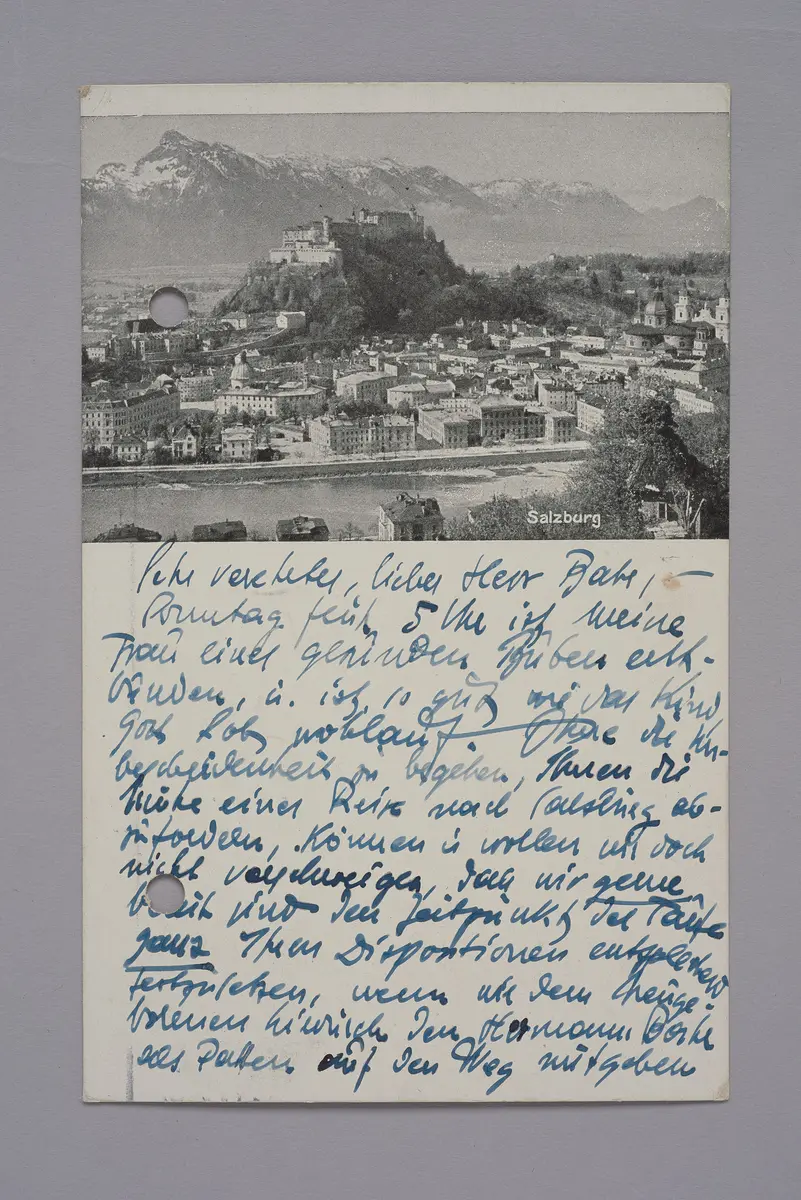 Salzburg
Sehr verehrter, lieber Herr Bahr, —
Sonntag früh 5 Uhr ist meine
Frau eines gesunden Buben ent-
bunden, u. ist so gut wie das Kind
Gott Lob wohlauf — Ohne die Un-
bescheidenheit zu begehen, Ihnen die
Mühe einer Reise nach Salzburg ab-
zufordern, können u wollen wir doch
nicht verschweigen, dass wir gerne
bereit sind den Zeitpunkt der Taufe
ganz Ihren Dispositionen entsprechend
festzusetzen, wenn wir dem Neuge-
borenen hiedurch den Hermann Bahr
als Paten auf den Weg mitgeben